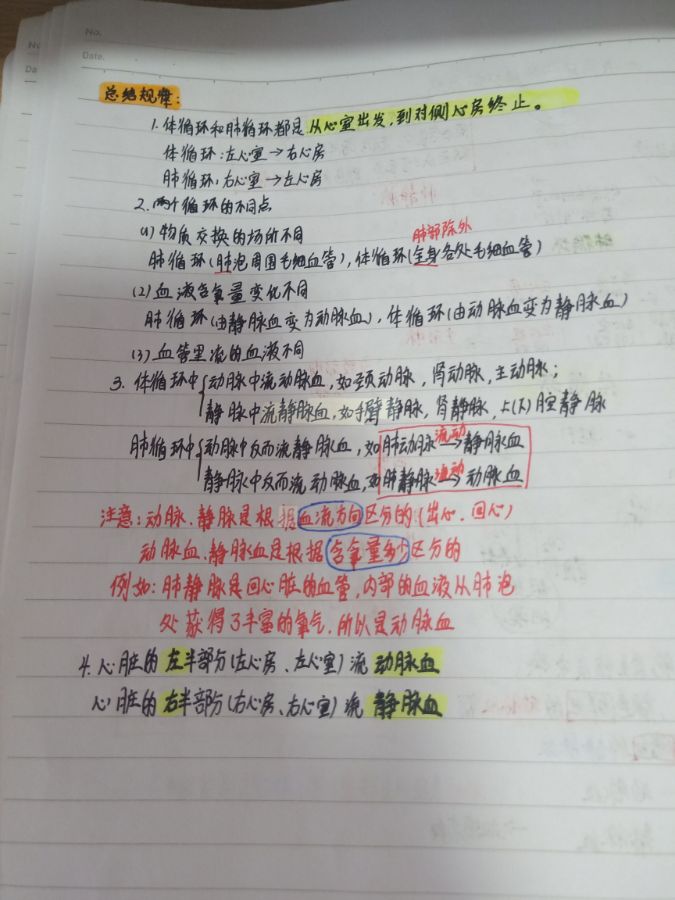 No.
Date.
总结规律:
1.体循环和肺循环都是从心室出发,到对侧心房终止。
体循环:左心室→右心房
肺循环:右心室→左心房
2.两个循环的不同点
(1)物质交换的场所不同
肺部除外
肺循环(肺泡周围毛细血管),体循环(全身各处毛细血管)
(2)血液含氧量变化不同
肺循环(由静脉血变为动脉血),体循环(由动脉血变为静脉血)
(3)血管里流的血液不同
3.体循环中{动脉中流动脉血,如颈动脉,肾动脉,主动脉;
静脉中流静脉血,如手臂静脉,肾静脉,上(下)腔静脉
肺循环中{动脉中反而流静脉血,如肺动脉流动→静脉血
静脉中反而流动脉血,如肺静脉流动→动脉血
注意:动脉、静脉是根据血流方向区分的(出心、回心)
动脉血、静脉血是根据含氧量多少区分的
例如:肺静脉是回心脏的血管,内部的血液从肺泡
处获得了丰富的氧气,所以是动脉血
4.心脏的左半部分(左心房、左心室)流动脉血
心脏的右半部分(右心房、右心室)流静脉血